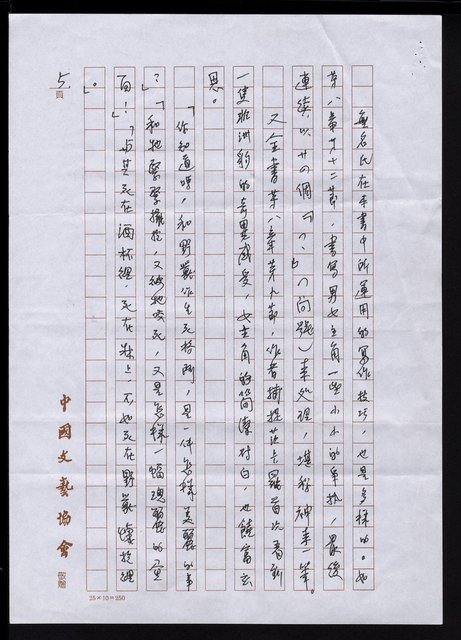 無名氏在本書中所運用的寫作技巧，也是多樣的。如
第八章廿十二節，書寫男女主角一些小小的爭執，最後
連續以廿四個「？」（問號）來處理，堪稱神來一筆。
又全書第八章第九節，作者捕捉范 首次看到
一隻非洲豹的奇異感受，女主角的簡潔對白，也饒富玄
思。
「你知道嗎，和野獸作生死格鬥，是一件怎樣美麗的事
？」「和牠緊緊擁抱，又被牠咬死，又是怎樣一幅瑰麗的畫
面！」「與其死在酒杯裡，死在牀上，不如死在野獸懷抱裡
。」
5頁
中國文藝協會 敬贈
25×10=250